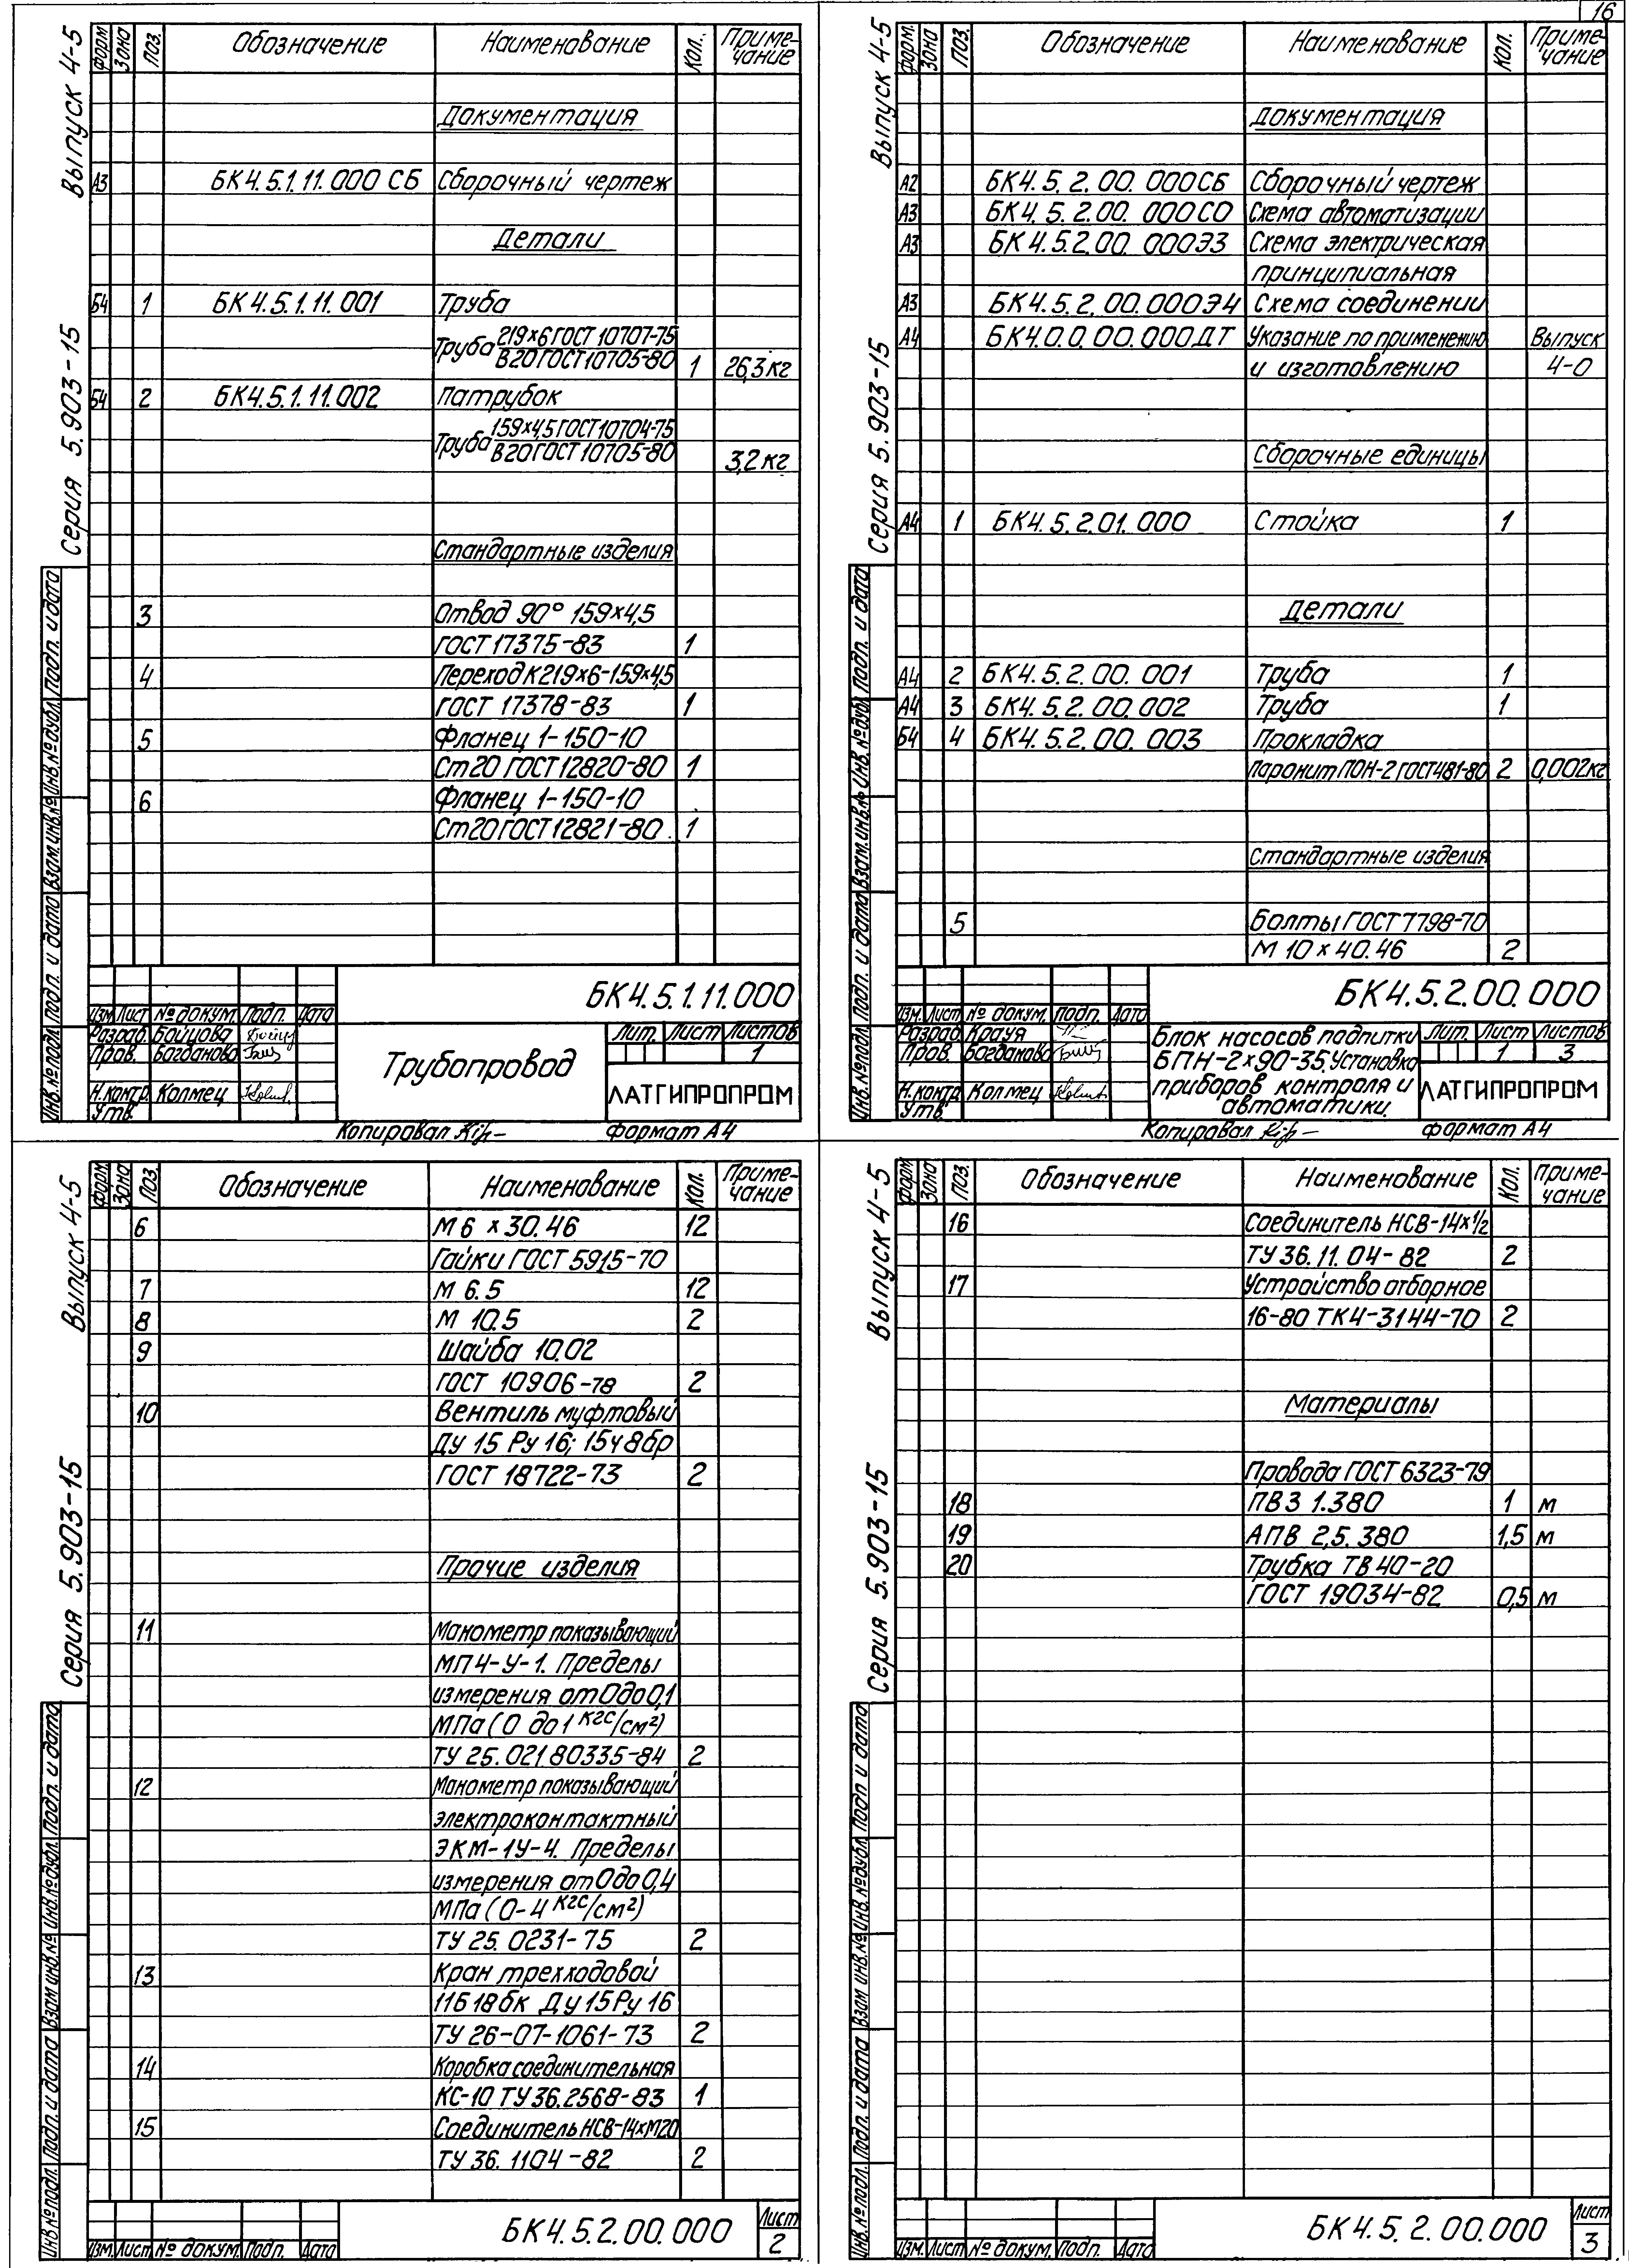 16
Выпуск 4-5
Серия 5.903-15
Форм. Зона Поз. Обозначение Наименование Кол. Примечание
Документация
А3 БК4.5.1.11.000 СБ Сборочный чертеж
Детали
Б4 1 БК4.5.1.11.001 Труба
Труба 219×6 ГОСТ 10707-75
В20 ГОСТ 10705-80 1 26,3 кг
Б4 2 БК4.5.1.11.002 Патрубок
Труба 159×4,5 ГОСТ 10704-75
В20 ГОСТ 10705-80 3,2 кг
Стандартные изделия
3 Отвод 90° 159×4,5
ГОСТ 17375-83 1
4 Переход К219×6-159×4,5
ГОСТ 17378-83 1
5 Фланец 1-150-10
Ст20 ГОСТ 12820-80 1
6 Фланец 1-150-10
Ст20 ГОСТ 12821-80 1
Инв.№подл. Подп. и дата Взам.инв.№ Инв.№дубл. Подп. и дата
БК4.5.1.11.000
Изм. Лист № докум. Подп. Дата
Разраб. Бойцова
Пров. Богданова
Н.контр. Колмец
Утв.
Трубопровод
Лит. Лист Листов
1
ЛАТГИПРОПРОМ
Копировал
Формат А4
Выпуск 4-5
Серия 5.903-15
Форм. Зона Поз. Обозначение Наименование Кол. Примечание
Документация
А2 БК4.5.2.00.000СБ Сборочный чертеж
А3 БК4.5.2.00.000СО Схема автоматизации
А3 БК4.5.2.00.000Э3 Схема электрическая
принципиальная
А3 БК4.5.2.00.000Э4 Схема соединении
А4 БК4.0.0.00.000ДТ Указание по применению Выпуск
и изготовлению 4-0
Сборочные единицы
А4 1 БК4.5.2.01.000 Стойка 1
Детали
А4 2 БК4.5.2.00.001 Труба 1
А4 3 БК4.5.2.00.002 Труба 1
Б4 4 БК4.5.2.00.003 Прокладка
Паронит ПОН-2 ГОСТ 481-80 2 0,002кг
Стандартные изделия
5 Болты ГОСТ 7798-70
М 10×40.46 2
Инв.№подл. Подп. и дата Взам.инв.№ Инв.№дубл. Подп. и дата
БК4.5.2.00.000
Изм. Лист № докум. Подп. Дата
Разраб. Крауя
Пров. Богданова
Н.контр. Колмец
Утв.
Блок насосов подпитки
БПН-2×90-35. Установка
приборов контроля и
автоматики.
Лит. Лист Листов
1 3
ЛАТГИПРОПРОМ
Копировал
Формат А4
Выпуск 4-5
Серия 5.903-15
Форм. Зона Поз. Обозначение Наименование Кол. Примечание
6 М6 × 30.46 12
Гайки ГОСТ 5915-70
7 М 6.5 12
8 М 10.5 2
9 Шайба 10.02
ГОСТ 10906-78 2
10 Вентиль муфтовый
Ду 15 Ру 16; 15ч8бр
ГОСТ 18722-73 2
Прочие изделия
11 Манометр показывающий
МП4-У-1. Пределы
измерения от 0 до 0,1
МПа (0 до 1 кгс/см²)
ТУ 25.02180335-84 2
12 Манометр показывающий
электроконтактный
ЭКМ-1У-4. Пределы
измерения от 0 до 0,4
МПа (0-4 кгс/см²)
ТУ 25.0231-75 2
13 Кран трехходовой
11Б18бк Ду 15 Ру 16
ТУ 26-07-1061-73 2
14 Коробка соединительная
КС-10 ТУ 36.2568-83 1
15 Соединитель НСВ-14×М20
ТУ 36.1104-82 2
Инв.№подл. Подп. и дата Взам инв.№ Инв.№дубл. Подп. и дата
Изм. Лист № докум. Подп. Дата
БК4.5.2.00.000
Лист
2
Выпуск 4-5
Серия 5.903-15
Форм. Зона Поз. Обозначение Наименование Кол. Примечание
16 Соединитель НСВ-14×1/2
ТУ 36.11.04-82 2
17 Устройство отборное
16-80 ТК4-3144-70 2
Материалы
Провода ГОСТ 6323-79
18 ПВ3 1.380 1 м
19 АПВ 2,5.380 1,5 м
20 Трубка ТВ40-20
ГОСТ 19034-82 0,5 м
Инв.№подл. Подп. и дата Взам инв.№ Инв.№дубл. Подп и дата
Изм. Лист № докум. Подп. Дата
БК4.5.2.00.000
Лист
3